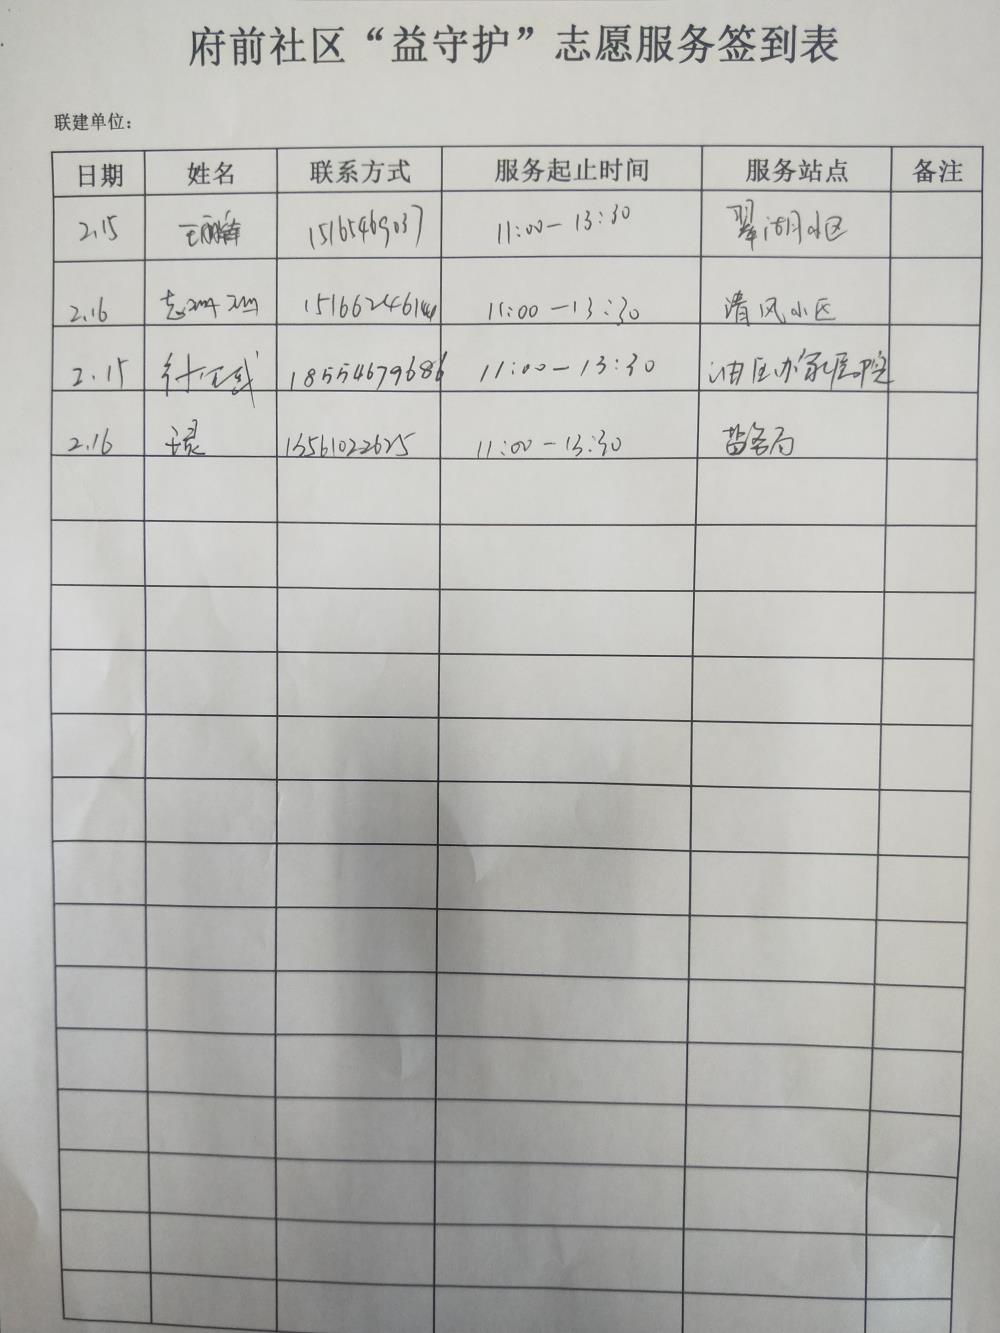 府前社区“益守护”志愿服务签到表
联建单位：
日期 姓名 联系方式 服务起止时间 服务站点 备注
2.15 15165469037 11:00-13:30 翠湖小区
2.16 11:00-13:30 清风小区
2.15 18554679686 11:00-13:30
2.16 13561022625 11:00-13:30 盐务局